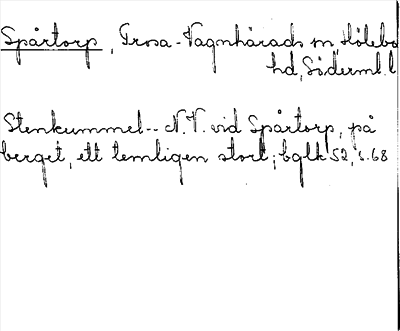 Spårtorp, Trosa-Vagnhärads sn, Hölebo
hd, Söderml. l
Stenkummel -- N.V. vid Spårtorp, på
berget, ett temligen stort; bglk 52, s. 68